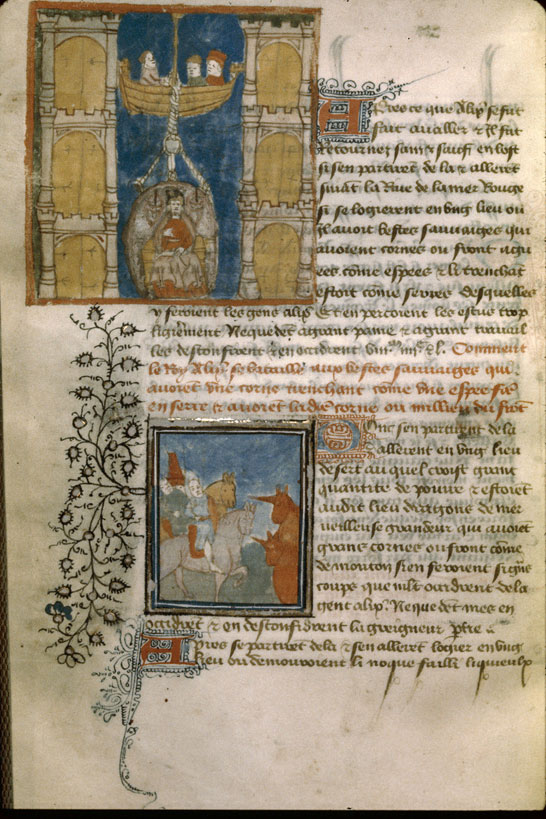 Apres ce que Alix se fut
fait avaller & il fut
retourner sain & sauf en lost
si sen partirent de la & allerent
suivant la Rive de la mer Rouge
si se logierent en ung lieu ou
il avoit bestes sauvaiges qui
avoient cornes ou front
come espees & le trenchant
estoit come serres desquelles
feroient les gens alix Et en percoient les escus trop
Nequedent a grant paine & a grant travail
les desconfirent & en occirent Comment
le Roy Alix se batailla aux bestes sauvaiges qui
avoient une corne trenchant come une espee
en serre & avoient ladicte corne ou millieu du front
Donc sen partirent de la
allerent en ung lieu
desert au quel croist grant
quantite de poivre & estoient
audit lieu draigons de mer
veilleuse grandeur qui avoient
grans cornes ou front come
de mouton si en feroient si grans
coups que mlt occirent de la
gent alix. Nequedent mors en
occirent & en desconfirent la greigneur ptie
Apres se partirent de la & sen allerent logier en ung
lieu ou demouroient